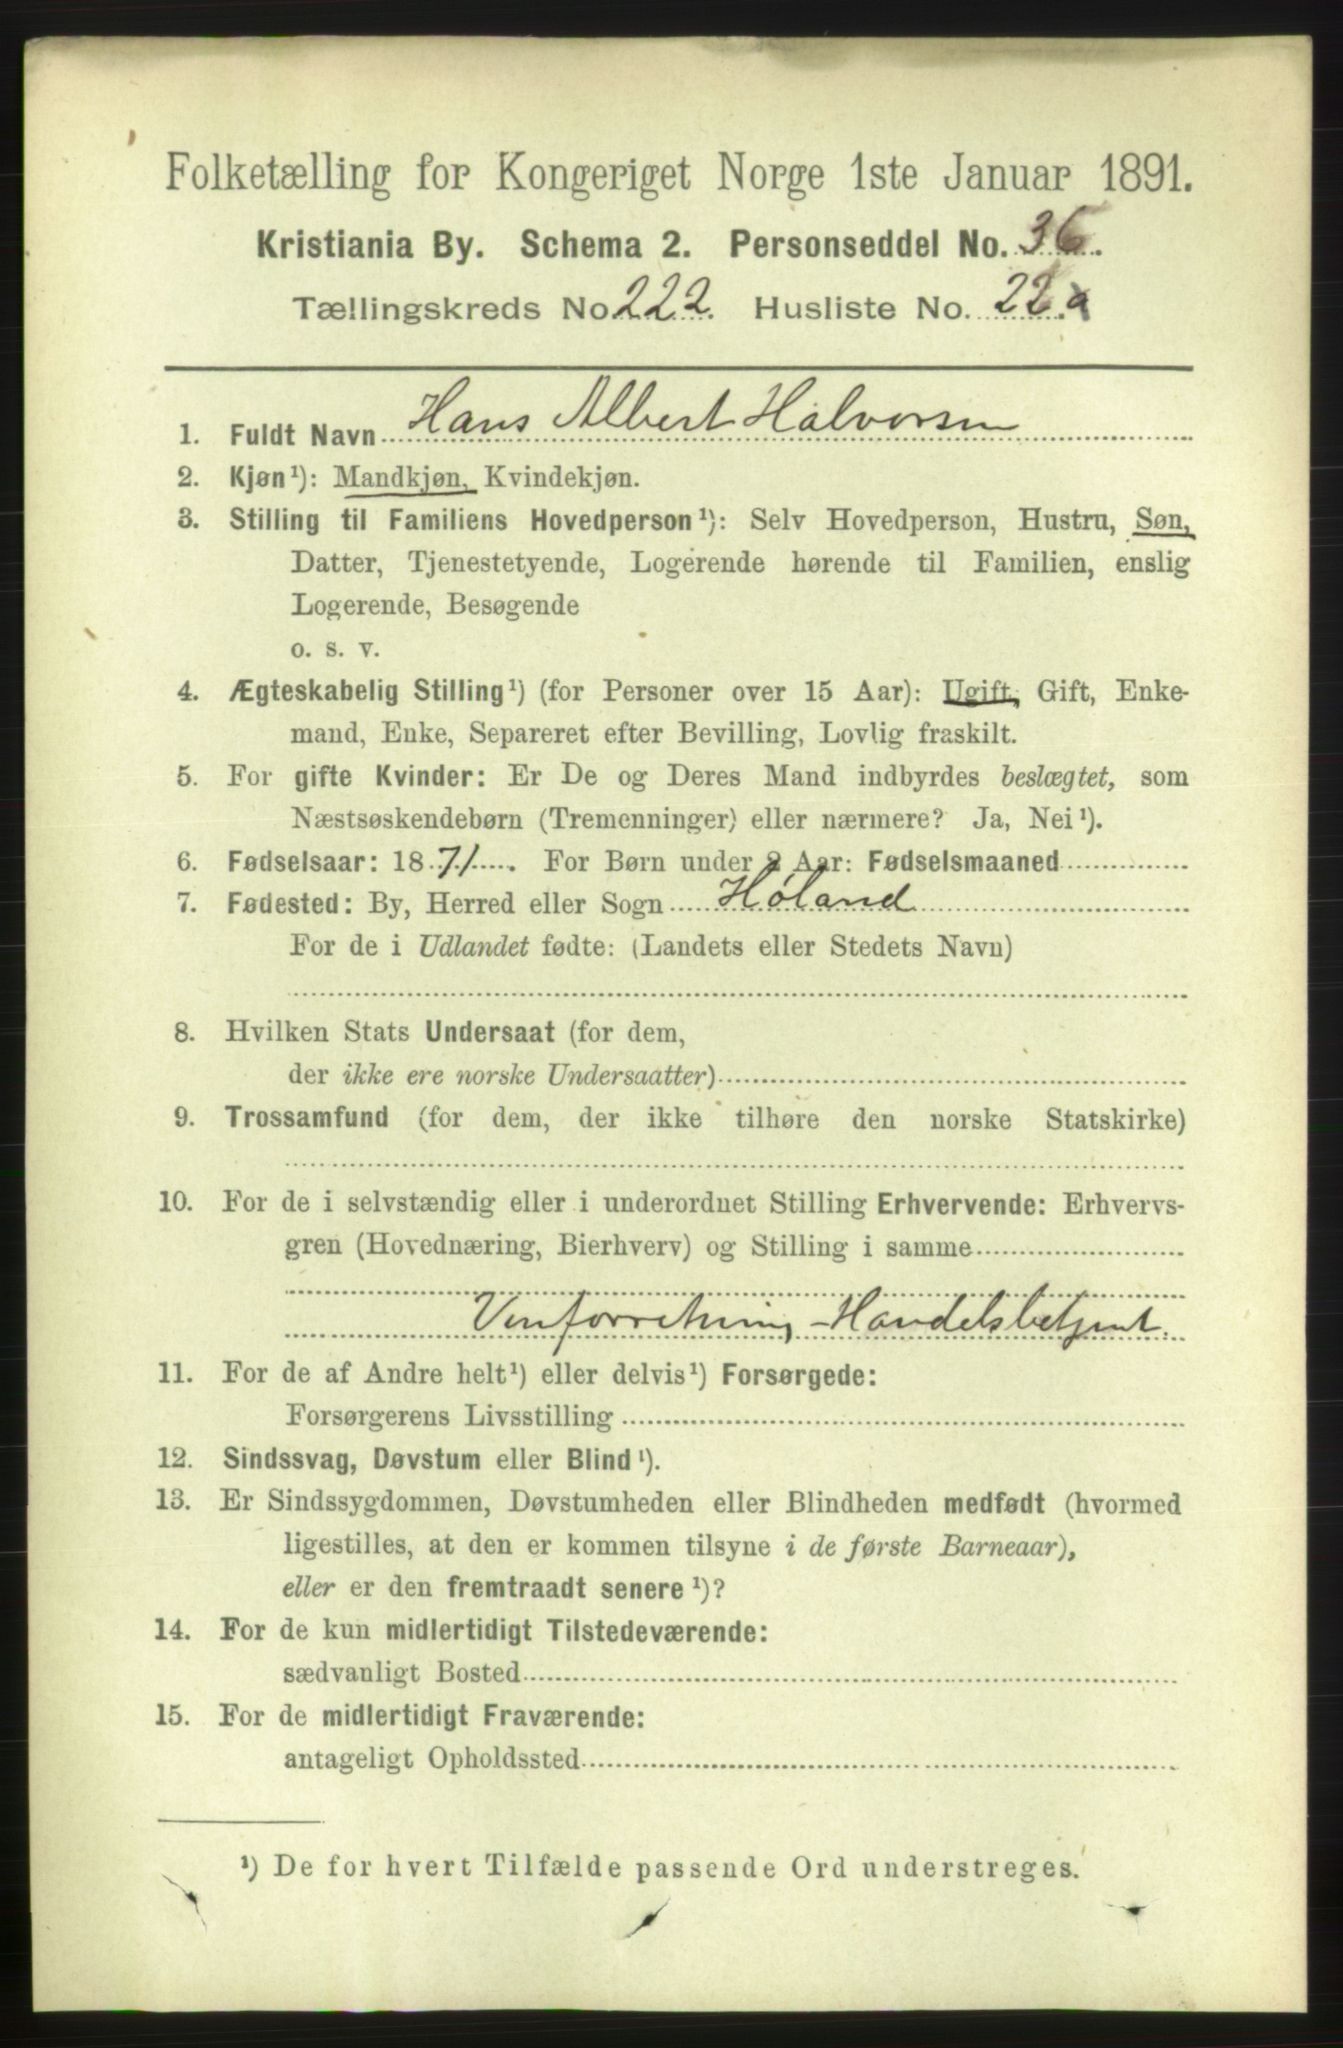 Folketælling for Kongeriget Norge 1ste Januar 1891.
Kristiania By. Schema 2. Personseddel No. 36.
Tællingskreds No. 222. Husliste No. 22a
1. Fuldt Navn Hans Albert Halvorsen
2. Kjøn¹): Mandkjøn, Kvindekjøn.
3. Stilling til Familiens Hovedperson¹): Selv Hovedperson, Hustru, Søn,
Datter, Tjenestetyende, Logerende hørende til Familien, enslig
Logerende, Besøgende
o. s. v.
4. Ægteskabelig Stilling¹) (for Personer over 15 Aar): Ugift, Gift, Enke-
mand, Enke, Separeret efter Bevilling, Lovlig fraskilt.
5. For gifte Kvinder: Er De og Deres Mand indbyrdes beslægtet, som
Næstsøskendebørn (Tremenninger) eller nærmere? Ja, Nei¹).
6. Fødselsaar: 1871. For Børn under 2 Aar: Fødselsmaaned
7. Fødested: By, Herred eller Sogn Høland
For de i Udlandet fødte: (Landets eller Stedets Navn)
8. Hvilken Stats Undersaat (for dem,
der ikke ere norske Undersaatter)
9. Trossamfund (for dem, der ikke tilhøre den norske Statskirke)
10. For de i selvstændig eller i underordnet Stilling Erhvervende: Erhvervs-
gren (Hovednæring, Bierhverv) og Stilling i samme
Vinforretning - Handelsbetjent.
11. For de af Andre helt¹) eller delvis¹) Forsørgede:
Forsørgerens Livsstilling
12. Sindssvag, Døvstum eller Blind¹).
13. Er Sindssygdommen, Døvstumheden eller Blindheden medfødt (hvormed
ligestilles, at den er kommen tilsyne i de første Barneaar),
eller er den fremtraadt senere¹)?
14. For de kun midlertidigt Tilstedeværende:
sædvanligt Bosted
15. For de midlertidigt Fraværende:
antageligt Opholdssted
¹) De for hvert Tilfælde passende Ord understreges.